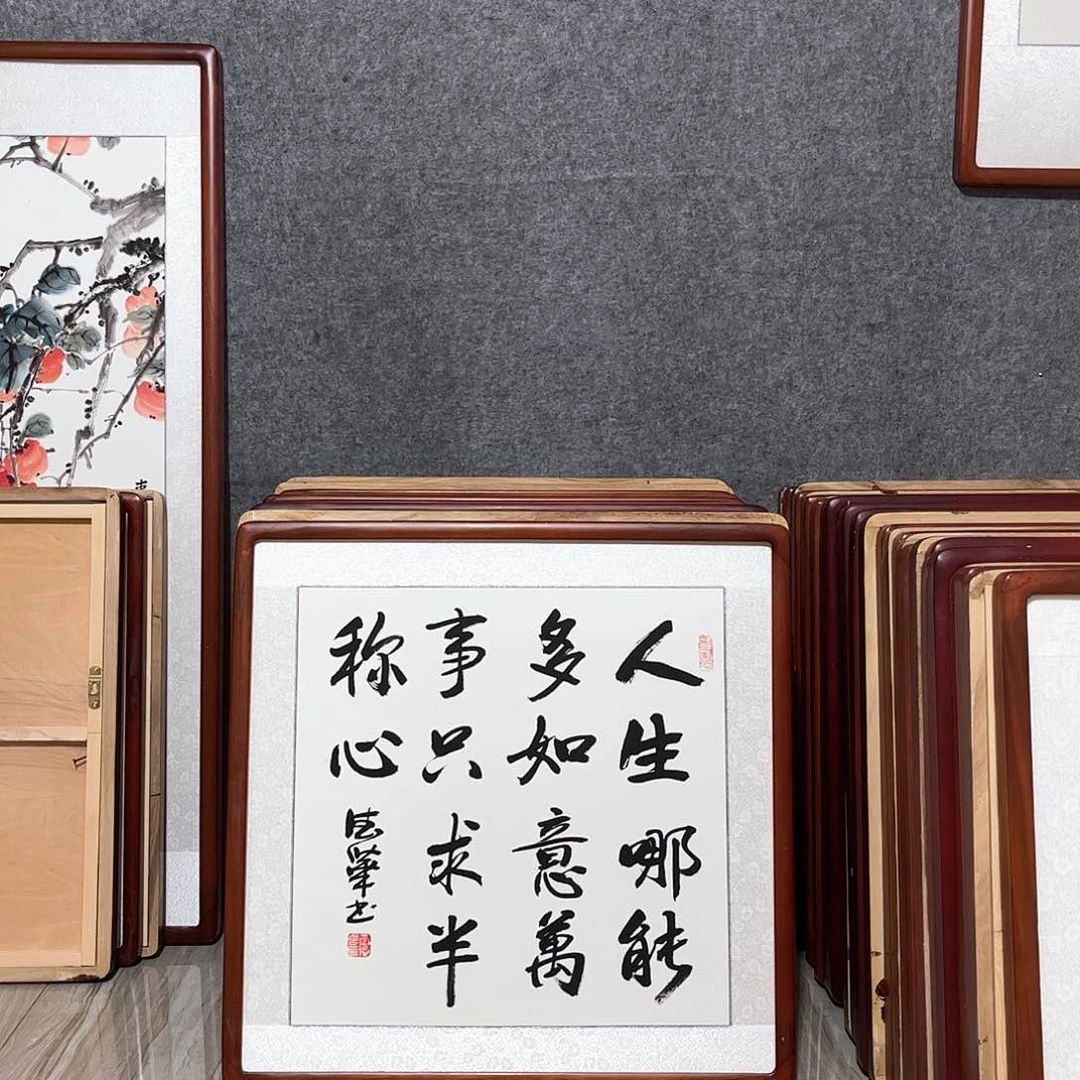 人生哪能
多如意萬
事只求半
称心
德華书